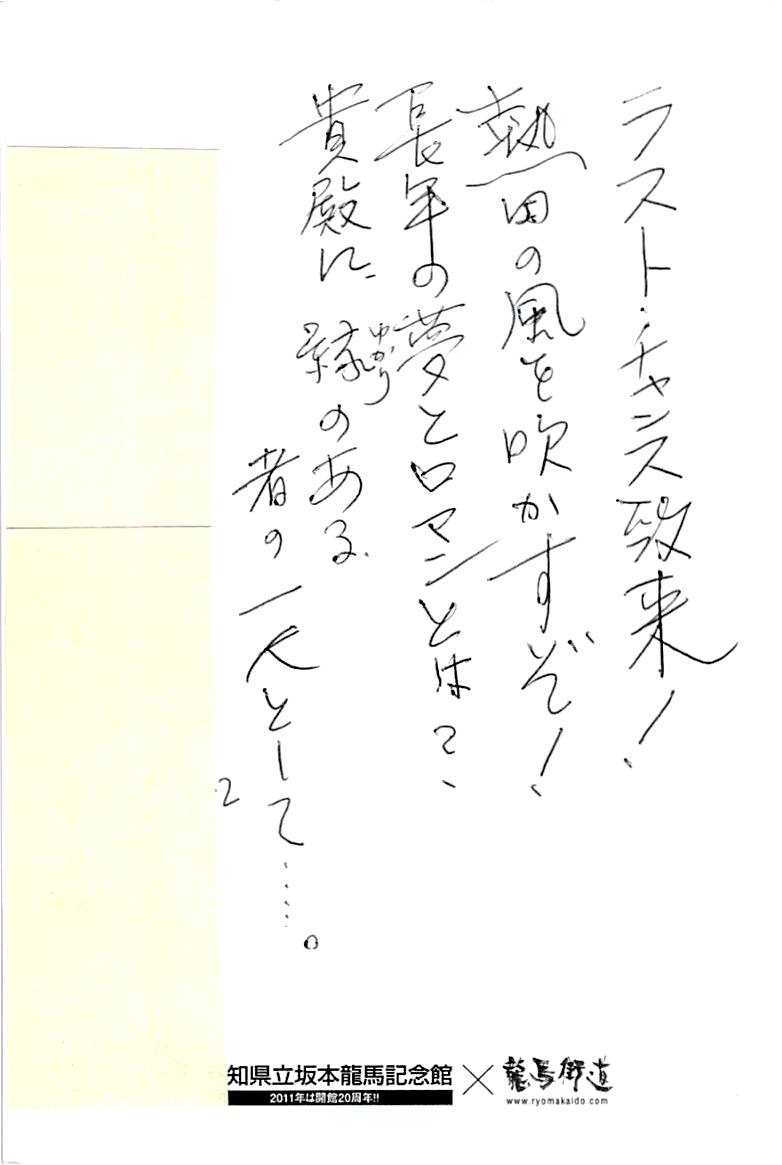 ラスト・チャンス致来!
熱田の風を吹かすぞ!
長年の夢とロマンとは?、
貴殿に、縁のある
ゆかり
者の一人として……。
知県立坂本龍馬記念館
2011年は開館20周年!!
×
龍馬街道
www.ryomakaido.com